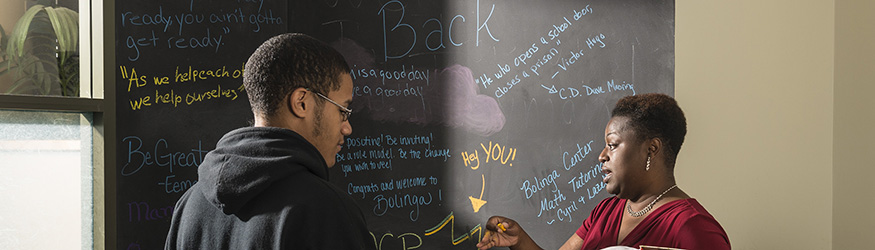 ready, you ain't gotta
get ready."
"As we help each o
we help ourselves
Be Great
Back
is a good day
a good day
positive! Be inviting!
Be a role model. Be the change
you wish to see!
Congrats and welcome to
Bolinga!
"He who opens a school door,
closes a prison"
- Victor Hugo
C.D. Dave
Hey YOU!
Bolinga Center
Math Tutoring
- Cyril &